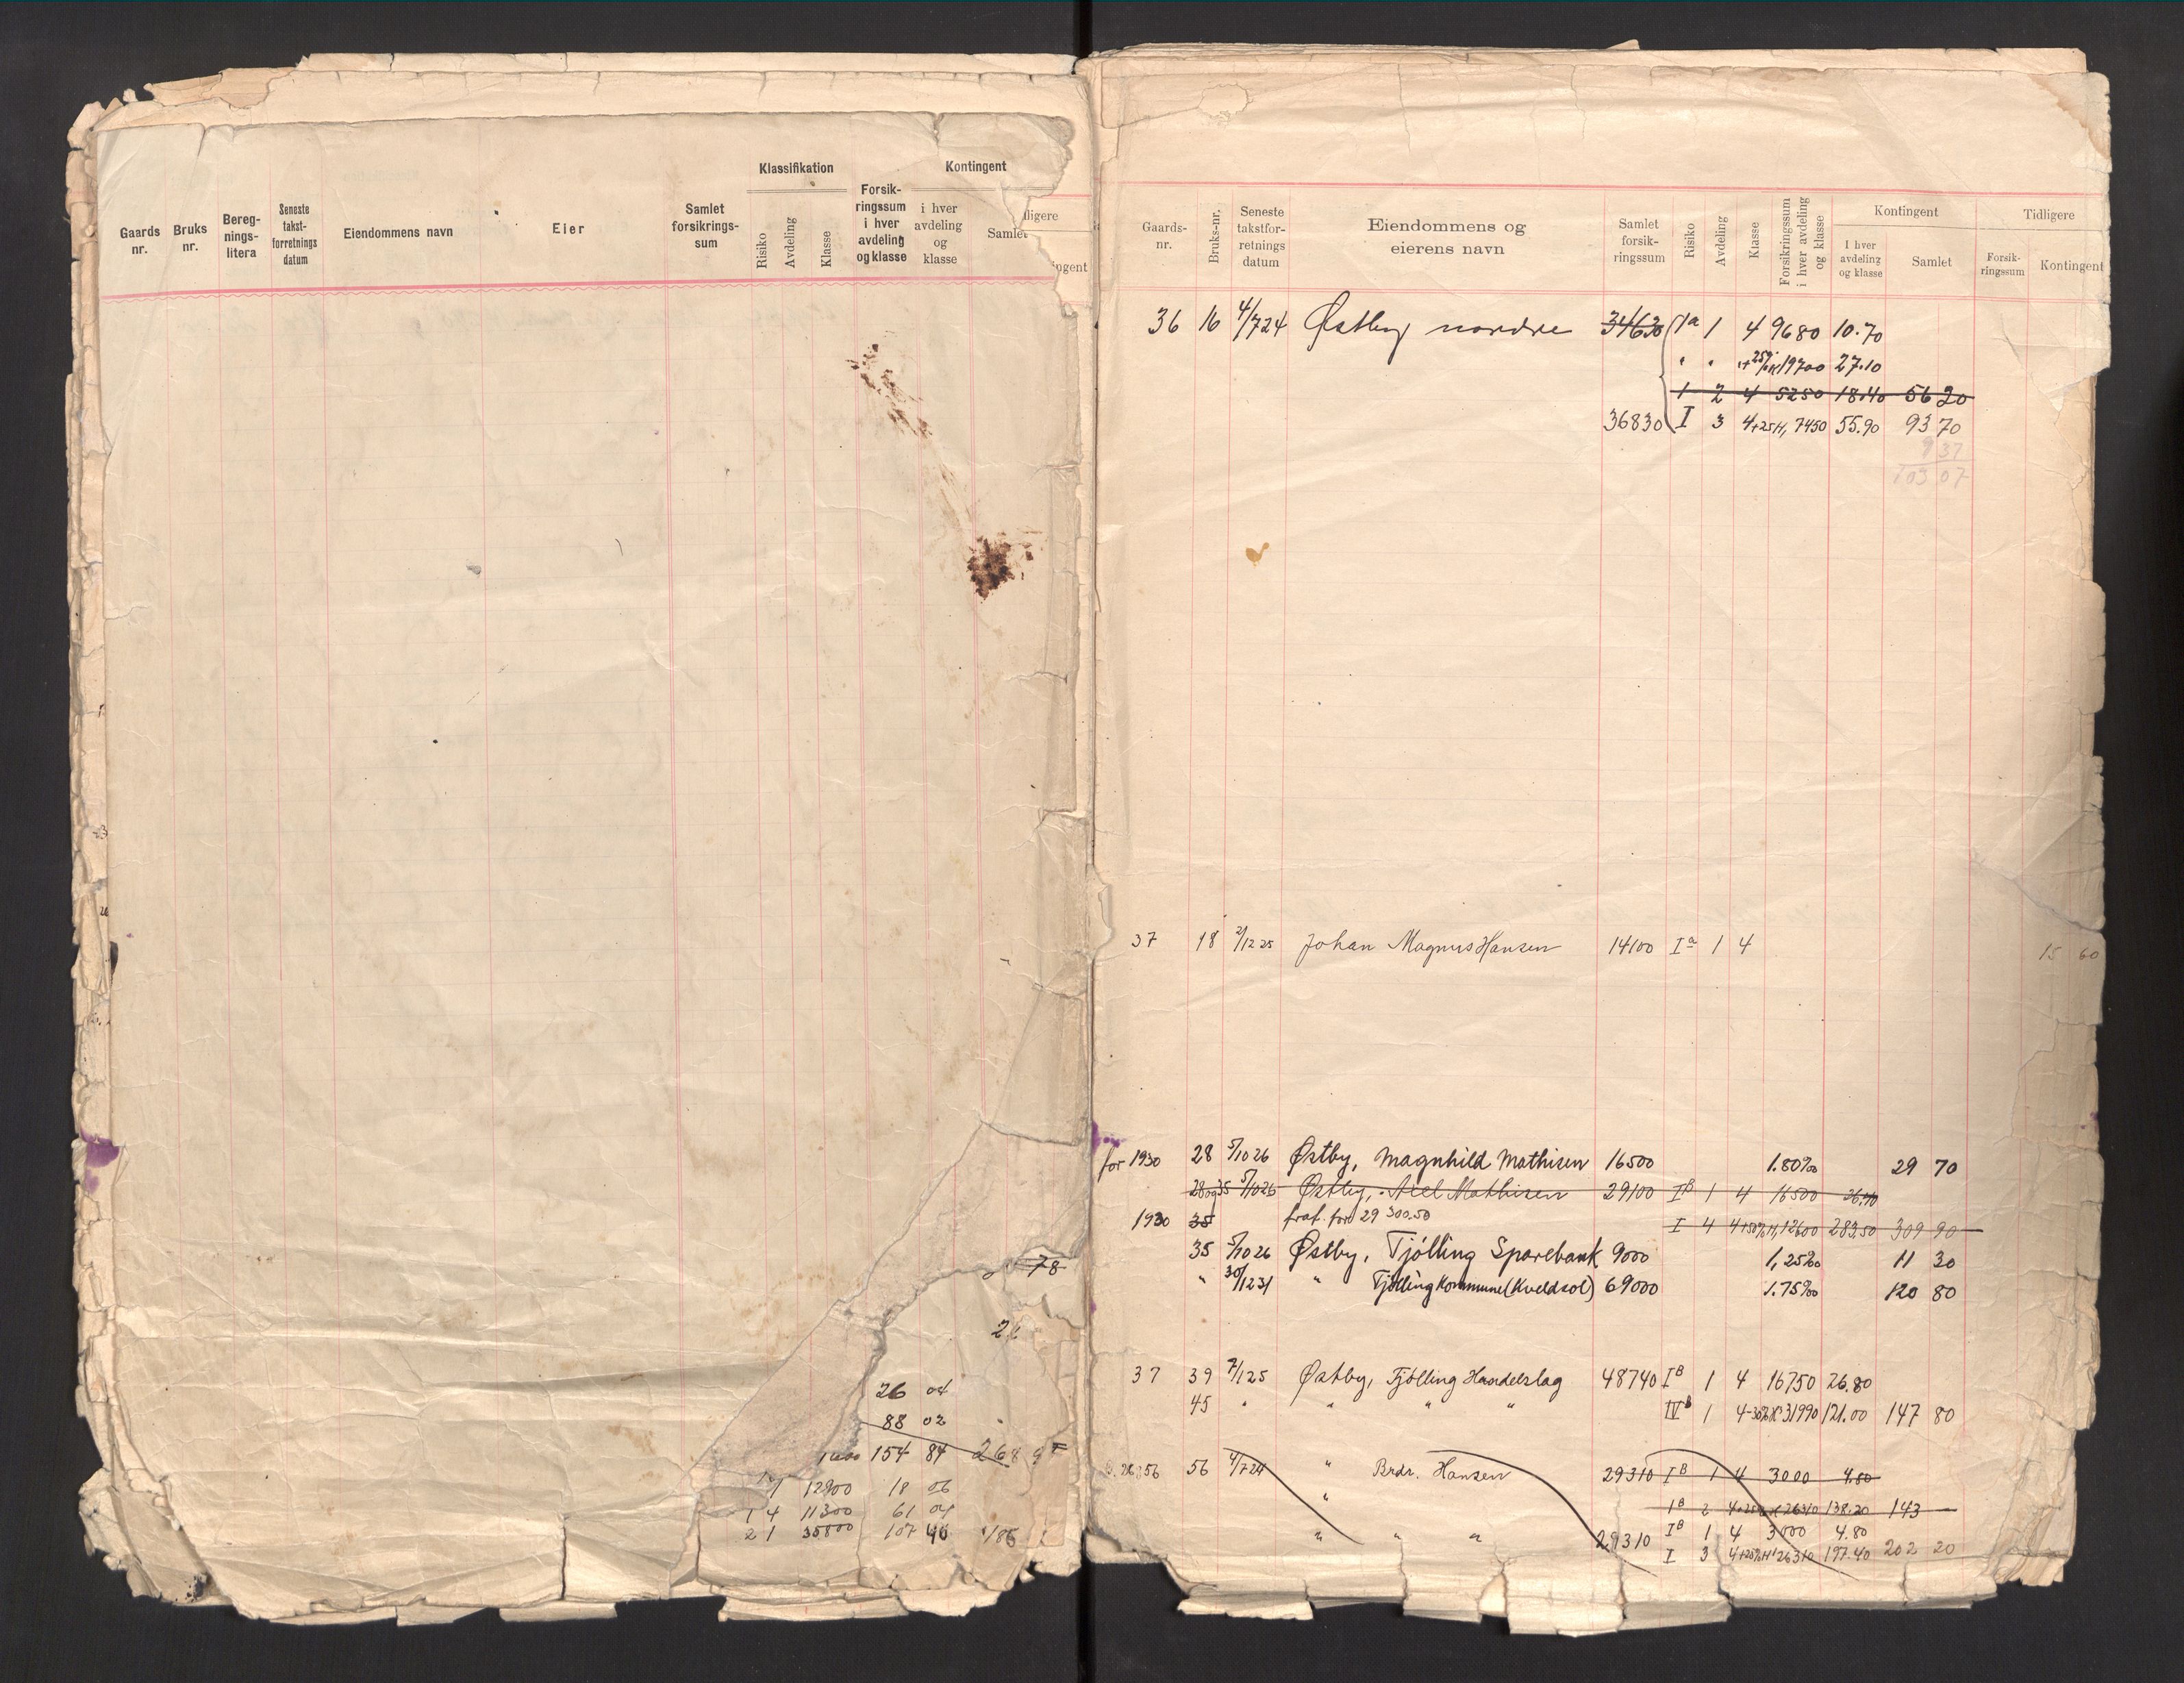 Klassifikation Kontingent
Gaards nr. Bruks nr. Bereg-nings-litera Seneste takst-forretnings datum Eiendommens navn Eier Samlet forsikrings-sum Risiko Avdeling Klasse Forsik-ringssum i hver avdeling og klasse i hver avdeling og klasse Samlet
78
26 04
88 02
154 84 268
1 12900 18 06
1 4 11300 61 04
2 1 35800 107 40 186
Kontingent Tidligere
Gaards-nr. Bruks-nr. Seneste takstfor-retnings datum Eiendommens og eierens navn Samlet forsik-ringssum Risiko Avdeling Klasse Forsikringssum i hver avdeling og klasse I hver avdeling og klasse Samlet Forsik-ringssum Kontingent
36 16 4/7 24 Østby nordre 34630 1a 1 4 9680 10.70
" " 19700 27.10
1 2 4 5250 18.40 56 20
36830 I 3 4+25H, 7450 55.90 93 70
9 37
103 07
37 18 2/12 25 Johan Magnus Hansen 14100 Ia 1 4 15 60
for 1930 28 5/10 26 Østby, Magnhild Mathisen 16500 1.80‰ 29 70
28 og 35 5/10 26 Østby, Axel Mathisen 29100 IB 1 4 16500 26.40
1930 35 for 29 300.50 I 4 4+50%H, 12600 283,50 309 90
35 5/10 26 Østby, Tjølling Sparebank 9000 1,25‰ 11 30
" 30/12 31 " Tjølling kommune (Kveldsol) 69000 1.75‰ 120 80
37 39 7/1 25 Østby, Tjølling Handelslag 48740 IB 1 4 16750 26.80
45 " " " " IVb 1 4-30% 31990 121.00 147 80
56 4/7 24 " Brdr. Hansen 29310 IB 1 4 3000 4.80
" 1B 2 4+25% 26310 138.20 143 —
" " " 29310 IB 1 4 3000 4.80
I 3 4+25%H 26310 197.40 202 20